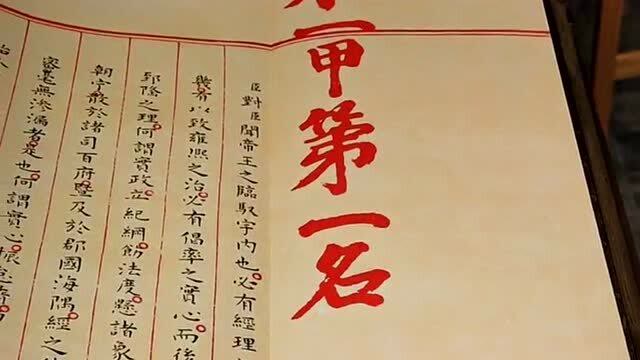 一甲第一名
臣對臣聞帝王之臨馭宇內也必有經理
有以致雍熙之治必有倡率之實心而後
郅隆之理何謂實政立紀綱飭法度懸諸象
朝宁散於諸司百府暨及於郡國海隅經之
密毫無滲漏者是也何謂實心振怠